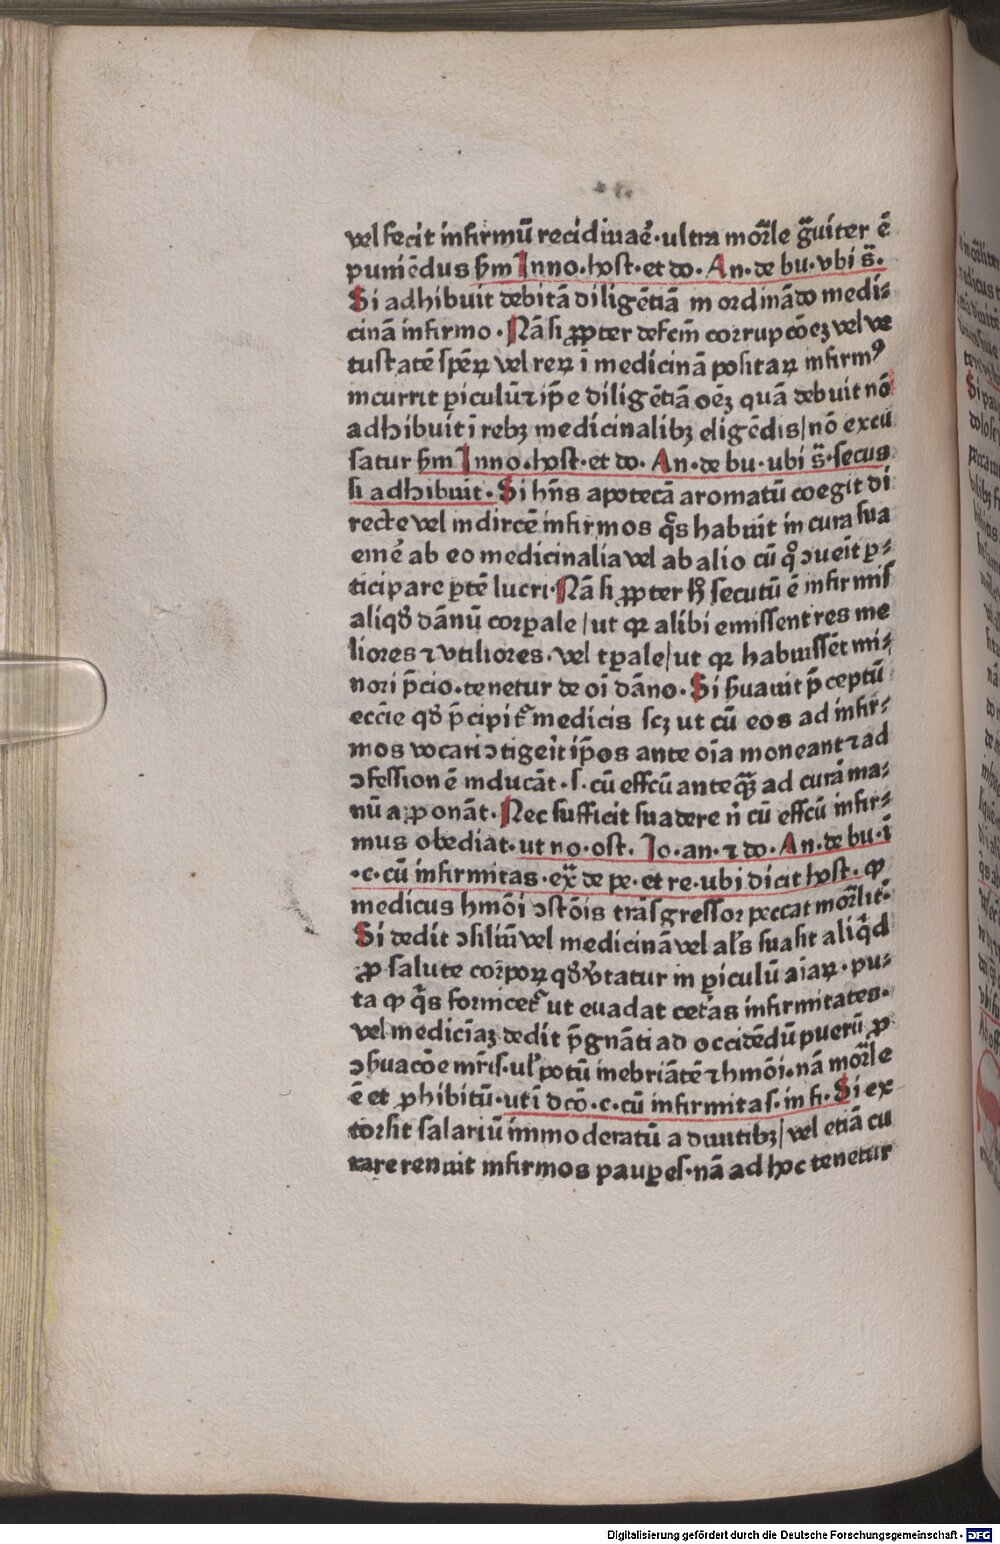 vel fecit infirmū recidiuaē·ultra mor̄le g̃uiter ē
puniēdus ẜm Inno.host.et do. An.de bu.vbi s̃.
Si adhibuit debitā diligētiā in ordinādo medi⸗
cinā infirmo. Nā si ꝓpter defcm̄ corrupcōeꝫ vel ve
tustatē spēꝝ vel reꝝ ī medicinā positaꝝ infirmꝰ
incurrit ꝑiculū⁊ ip̄e diligētiā oēꝫ quā debuit nō
adhibuit ī rebꝫ medicinalibꝫ eligēdis/nō excu
satur ẜm Inno.host.et do. An.de bu.ubi s̃.secus
si adhibuit. Si hn̄s apotecā aromatū coegit di
recte vel indircē infirmos q̄s habuit in cura sua
emē ab eo medicinalia vel ab alio cū qͦ ɔueīt p̲⸗
ticipare p̲tē lucri. Nā si ꝓpter ħ secutū ē infirmis
aliqđ dānū corꝑale/ut qꝛ alibi emissent res me
liores ⁊ vtiliores.vel tꝑale/ut qꝛ habuissēt mi⸗
nori p̄cio.tenetur de oī dāno. Si ẜuauit p̄ceptū
ecc̄ie qđ p̄cipit᷑ medicis scꝫ ut cū eos ad infir⸗
mos vocari ɔtigeīt ip̄os ante oīa moneant ⁊ ad
ɔfessionē inducāt.s.cū effcū anteq̃ꝫ ad curā ma⸗
nū apponāt. Nec sufficit suadere n̄ cū effcū infir⸗
mus obediat.ut no.ost. Io.an.⁊ do. An.de bu.ī
.c.cū infirmitas.ex̄ de pe.et re.ubi dicit host. ꝙ
medicus hmōi ɔstōis trāsgressor peccat mor̄lit᷑.
Si dedit ɔsiliū vel medicinā vel al's suasit aliq̄d
ꝓ salute corporꝝ qđ v̄tatur in ꝑiculū aīaꝝ.pu⸗
ta ꝙ q̄s fornicet᷑ ut euadat cet᷑as infirmitates.
vel medicīaꝫ dedit p̄gnāti ad occidēdū puerū ꝓ
ɔẜuacōe mr̄is.ul' potū inebriātē ⁊ hmōi.nā mor̄le
ē et ꝓhibitū.ut ī dcō.c.cū infirmitas.in fi. Si ex
torsit salariū immoderatū a diuitibꝫ/vel etiā cu
rare renuit infirmos pauꝑes.nā ad hoc tenetur
Digitalisierung gefördert durch die Deutsche Forschungsgemeinschaft - DFG